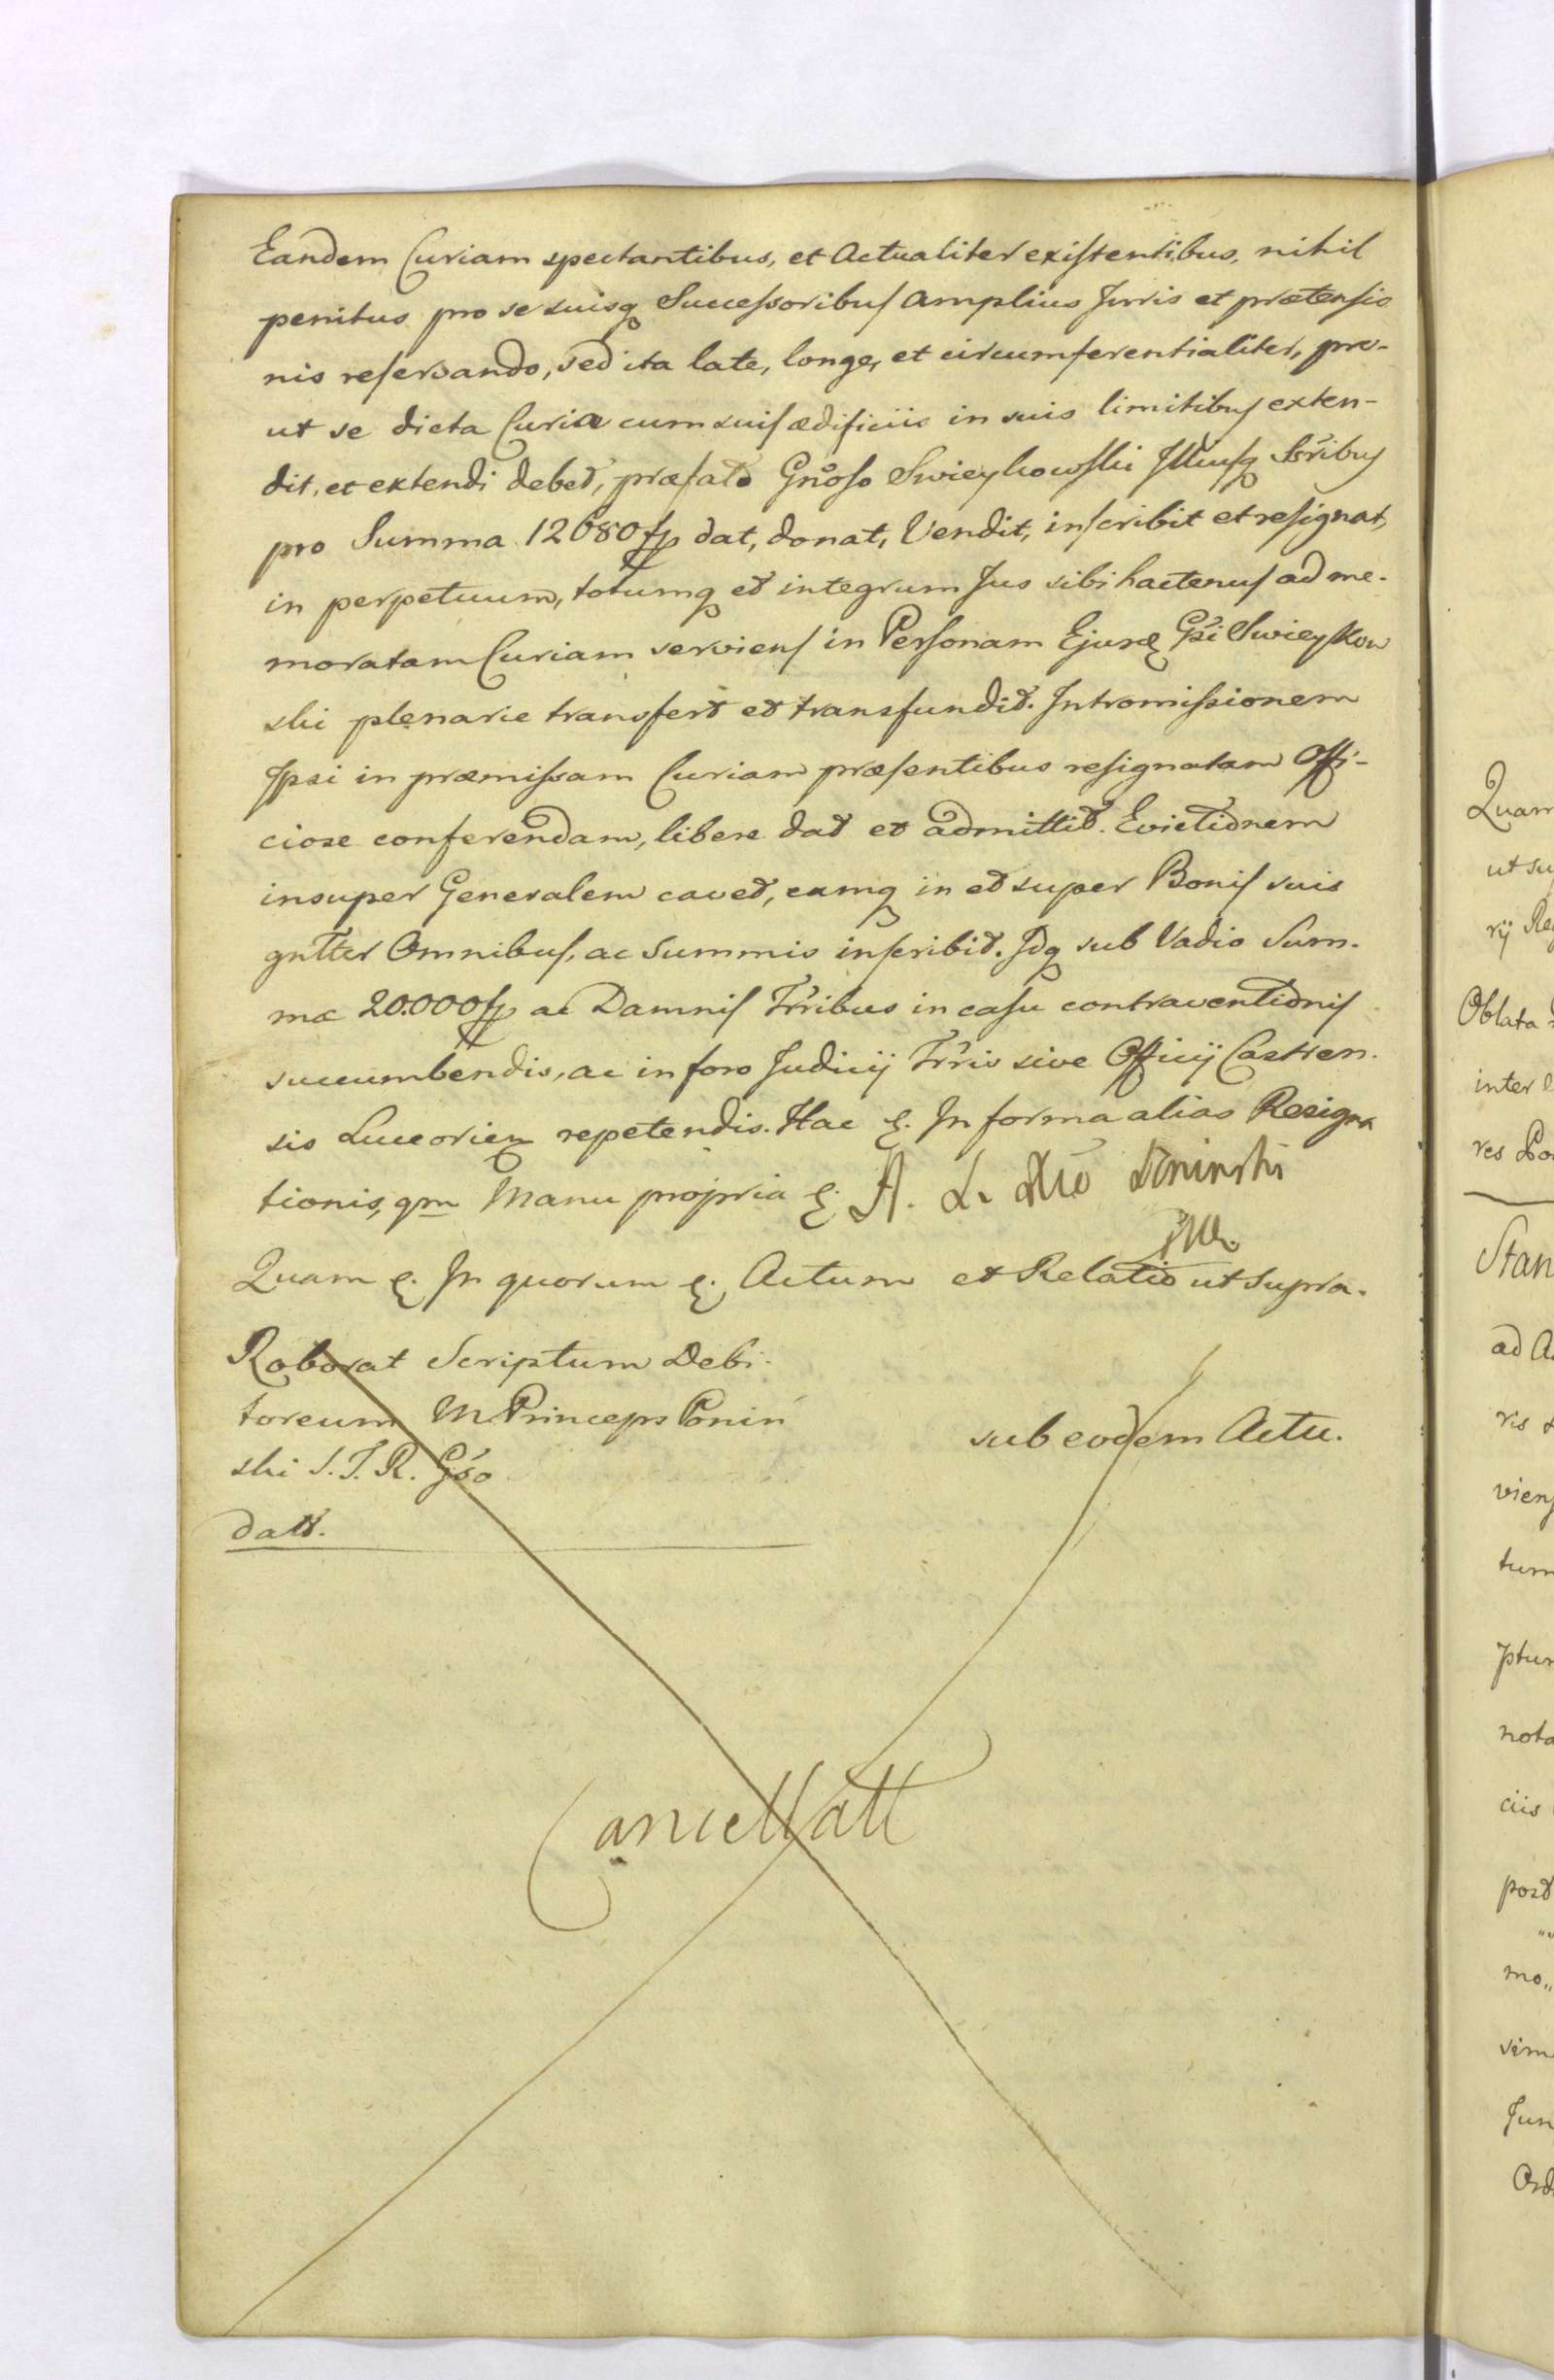 Eandem Curiam spectantibus, et Actualiter existentibus, nihil
penitus pro se suisq Successoribus amplius Juris et prætensio
nis reservando, sed ita late, longe, et circumferentialiter, pro-
ut se dicta Curia cum suis ædificiis in suis limitibus exten-
dit, et extendi debet, præfato Gnoso Swieykowski Illiusq Sſribus
pro Summa 12680 fp dat, donat, Vendit, inscribit et resignat,
in perpetuum, totumq et integrum Jus sibi hactenus ad me-
moratam Curiam serviens in Personam Ejusd Gsi Swieykow
ski plenarie transfert et transfundit. Intromissionem
Ipsi in præmissam Curiam præsentibus resignatam Offi-
ciose conferendam, libere dat et admittit. Evictionem
insuper Generalem cavet, eamq in et super Bonis suis
gntter Omnibus, ac Summis inscribit. Idq sub Vadio Sum-
mæ 20.000 fp ac Damnis Trribus in casu contraventionis
succumbendis, ac in foro Judicij Trris sive Officij Castren-
sis Luceorien repetendis. Hac &. In forma alias Resigna
tionis, qm Manu propria &. A. L. Poninski
Quam &. In quorum &. Actum et Relatio ut supra.
Roborat Scriptum Debi-
toreum M Princeps Poniń
ski S. T. R. Gso
datt.
sub eodem Actu.
Cancellatt
Quam
ut su
rij Reg
Oblata
inter
res Po
Stan
ad A
ris
viens
tum
ptum
nota
ciis
post
mo,,
sim
Jun
Ord